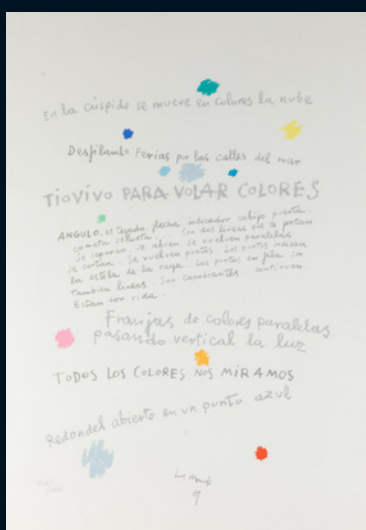 En la cúspide se mueve en colores la nube
Desfilando Ferias por las calles del mar
TIOVIVO PARA VOLAR COLORES
ANGULO, es tejado flecha indicador cobijo puerta.
cometa silueta. Son dos lineas que se juntan
se separan se abren se vuelven paralelas
se cortan. Se vuelven puntos. Los puntos indican
la estela de la raya. Los puntos en fila son
tambien lineas. Son cambiantes continuan.
Estan con vida.
Franjas de colores paralelas
pasando vertical la luz
TODOS LOS COLORES NOS MIRAMOS
Redondel abierto en un punto azul